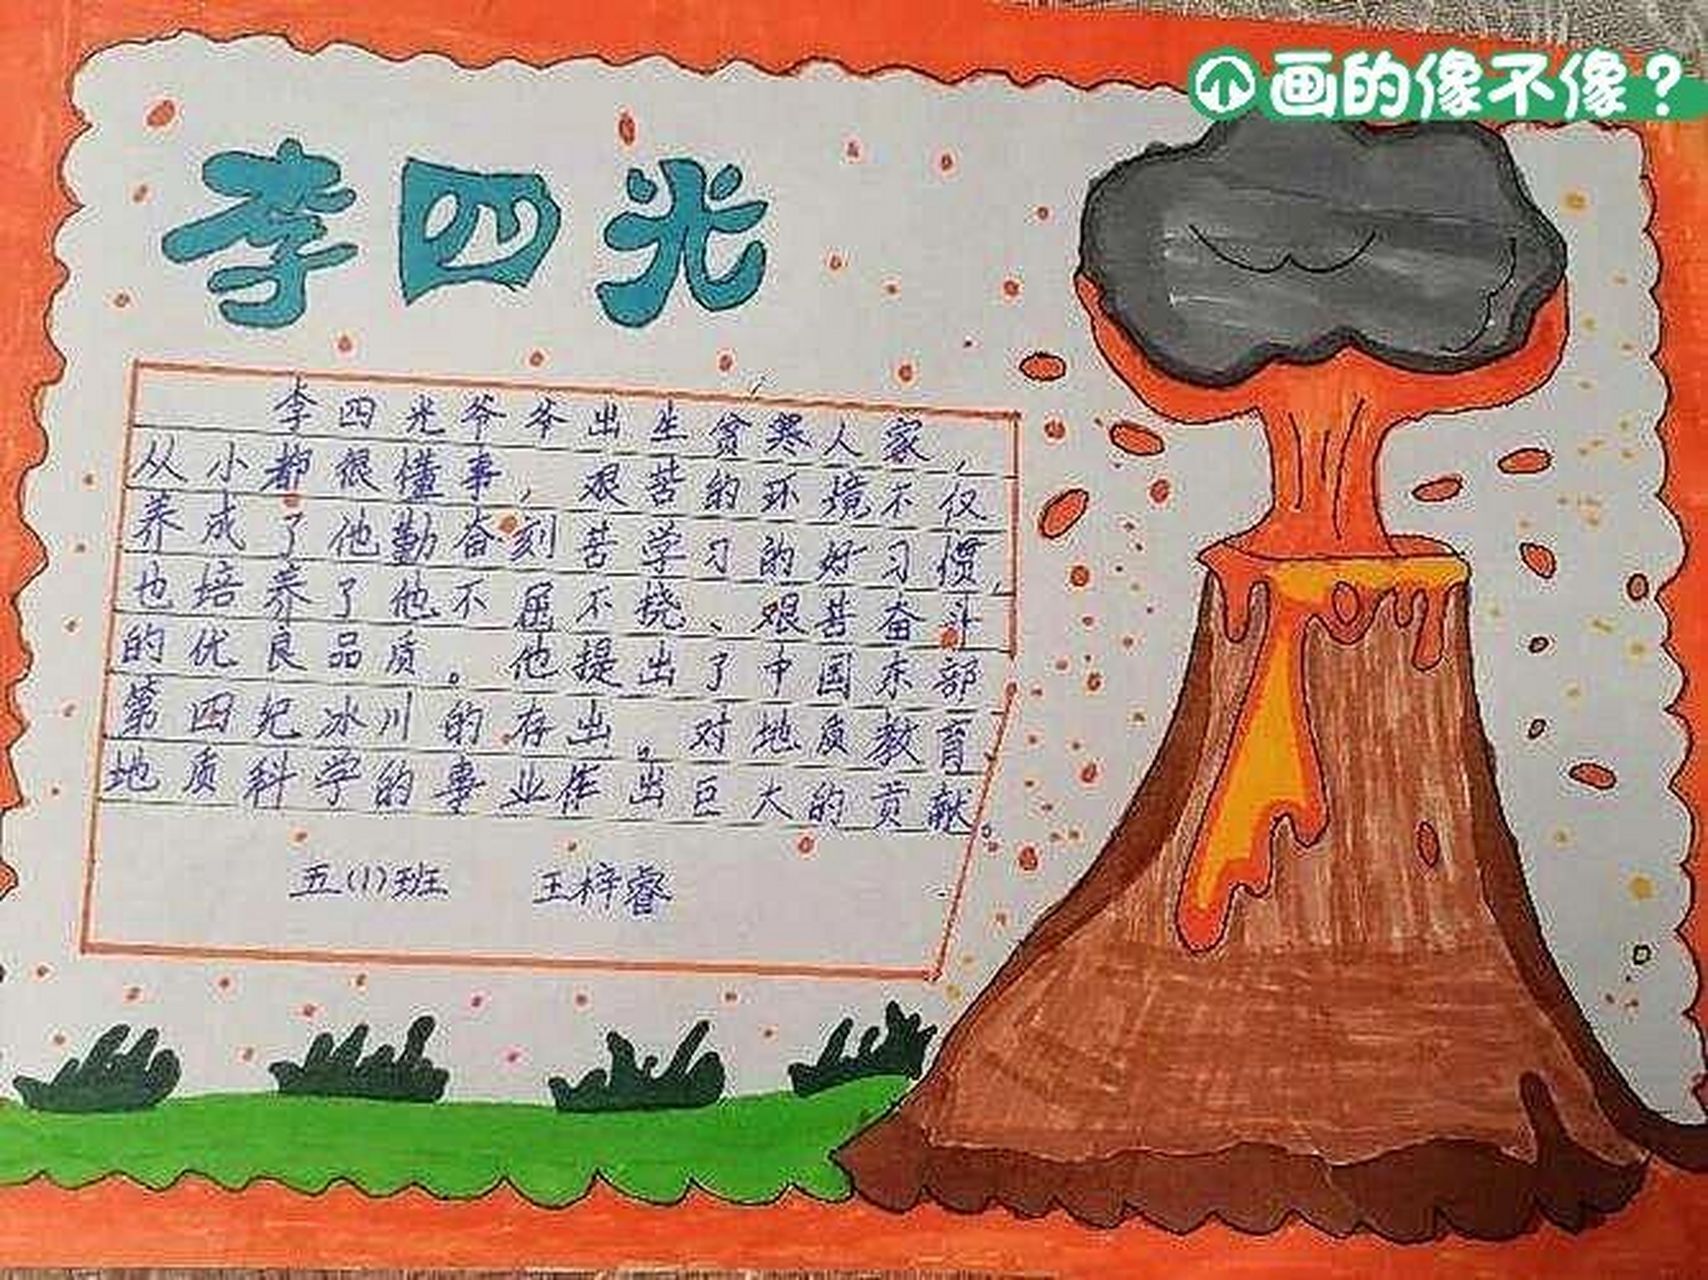 画的像不像？
李四光
李四光爷爷出生贫寒人家，
从小都很懂事，艰苦的环境不仅
养成了他勤奋刻苦学习的好习惯，
也培养了他不屈不挠、艰苦奋斗
的优良品质。他提出了中国东部
第四纪冰川的存出。对地质教育、
地质科学的事业作出巨大的贡献。
五(1)班 王梓睿